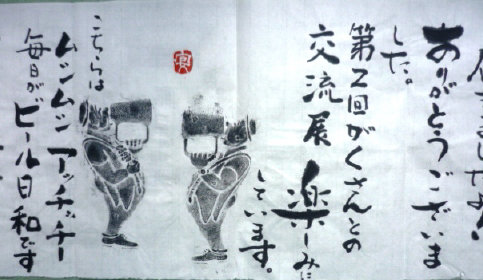 ましたよ！
ありがとうございま
した。
第2回がくさんとの
交流展 楽しみに
しています。
こちらは
ムシムシ アッチッチー
毎日がビール日和です